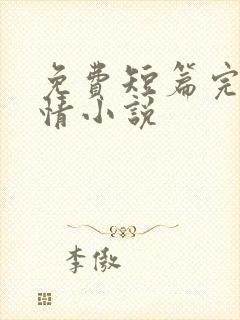 免费短篇完
情小说
李傲